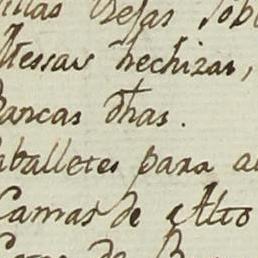 illas Viejas Sob
Messas hechizas,
Bancas dhas.
aballetes para a
Camas de Alto